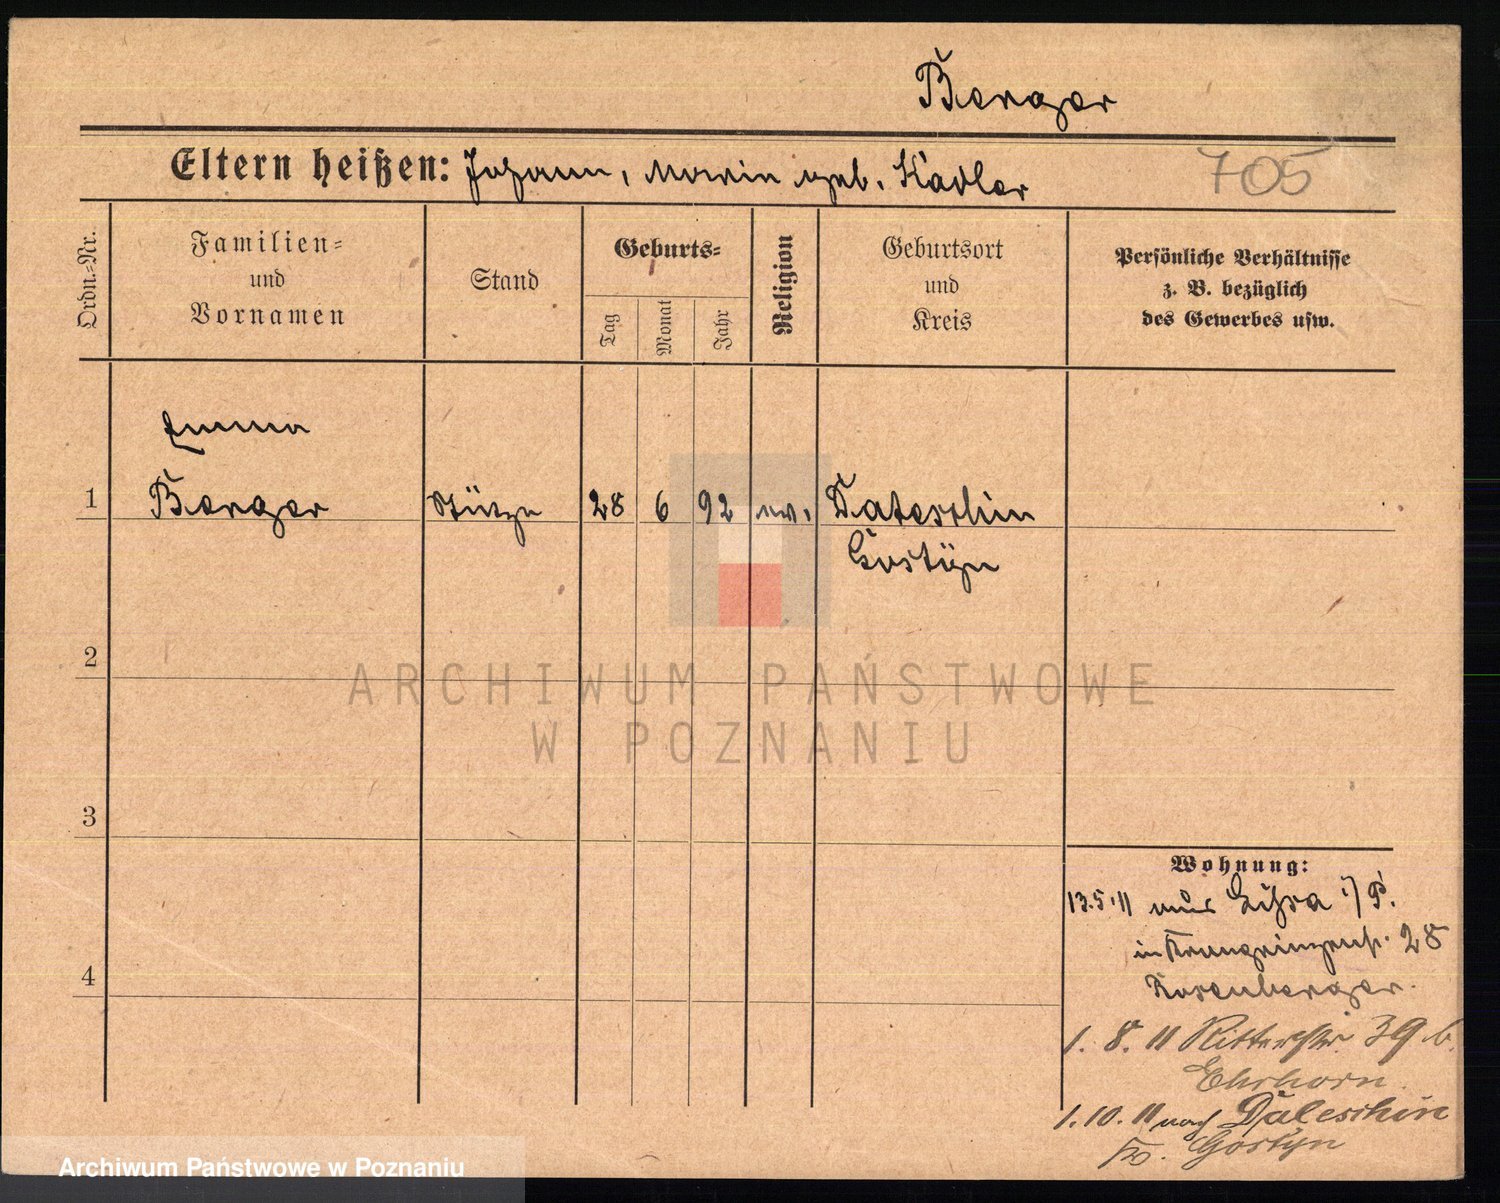 Berger
Eltern heißen: Johann, Maria geb. Kadler
705
Ordn.=Nr.
Familien=
und
Vornamen
Stand
Geburts=
Tag
Monat
Jahr
Religion
Geburtsort
und
Kreis
Persönliche Verhältnisse
z. B. bezüglich
des Gewerbes usw.
Emma
1 Berger Stütze 28 6 92 ev. Daleschin
Gostyn
2
3
4
Wohnung:
13.5.11 aus Lissa i/P.
in Kronprinzenstr. 28
Rosenberger.
1. 8. 11 Ritterstr. 39 b.
Ehrhorn.
1.10.11 nach Daleschin
Kr. Gostyn
ARCHIWUM PAŃSTWOWE
W POZNANIU
Archiwum Państwowe w Poznaniu